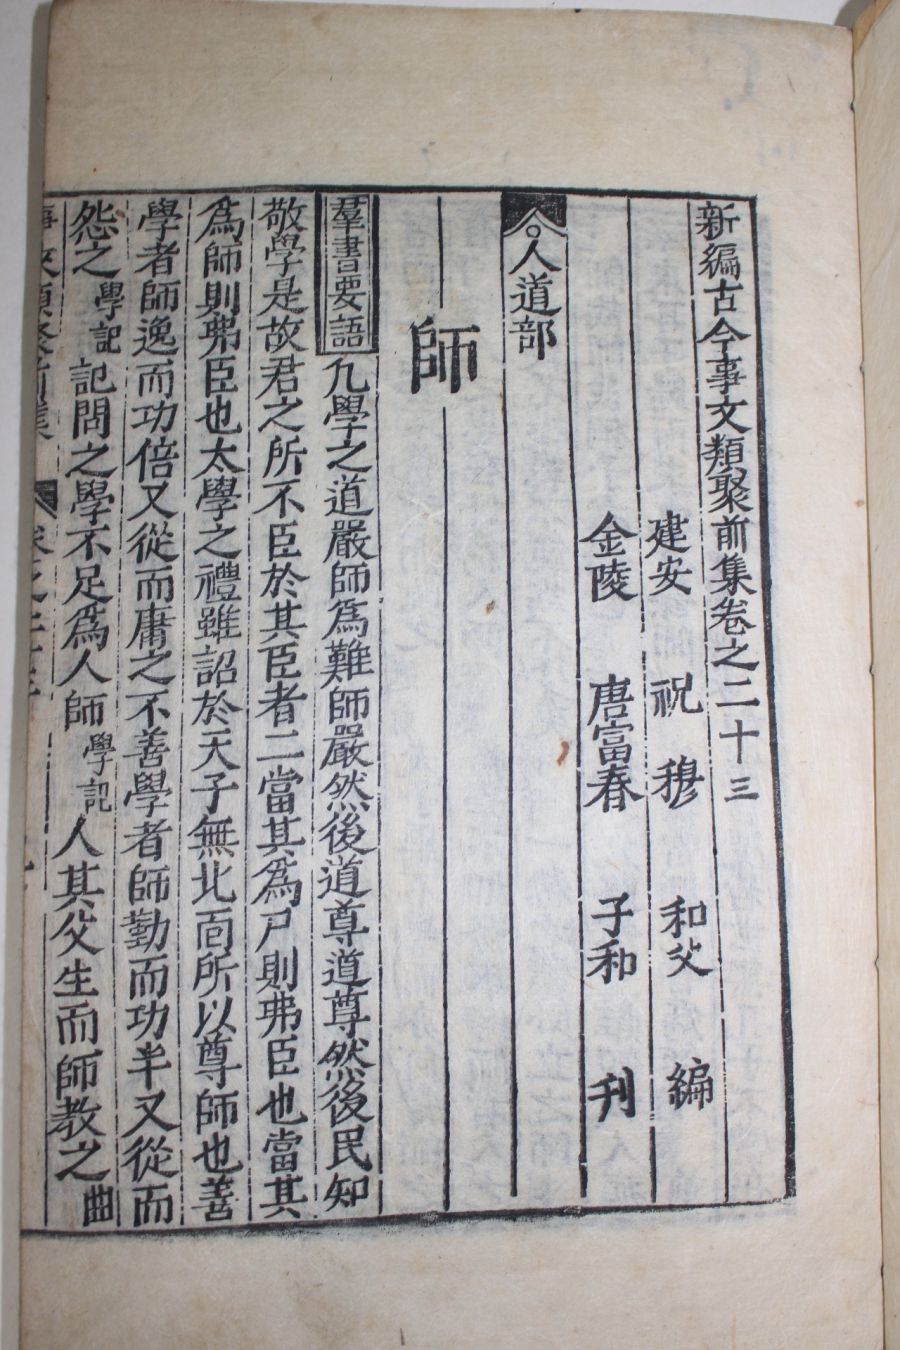 新編古今事文類聚前集卷之二十三
建安 祝 穆 和父 編
金陵 唐富春 子和 刊
人道部
師
羣書要語 凡學之道嚴師爲難師嚴然後道尊道尊然後民知
敬學是故君之所不臣於其臣者二當其爲尸則弗臣也當其
爲師則弗臣也太學之禮雖詔於天子無北面所以尊師也善
學者師逸而功倍又從而庸之不善學者師勤而功半又從而
怨之 學記 記問之學不足爲人師 學記 人其父生而師教之 曲
事文類聚前集 卷之二十三